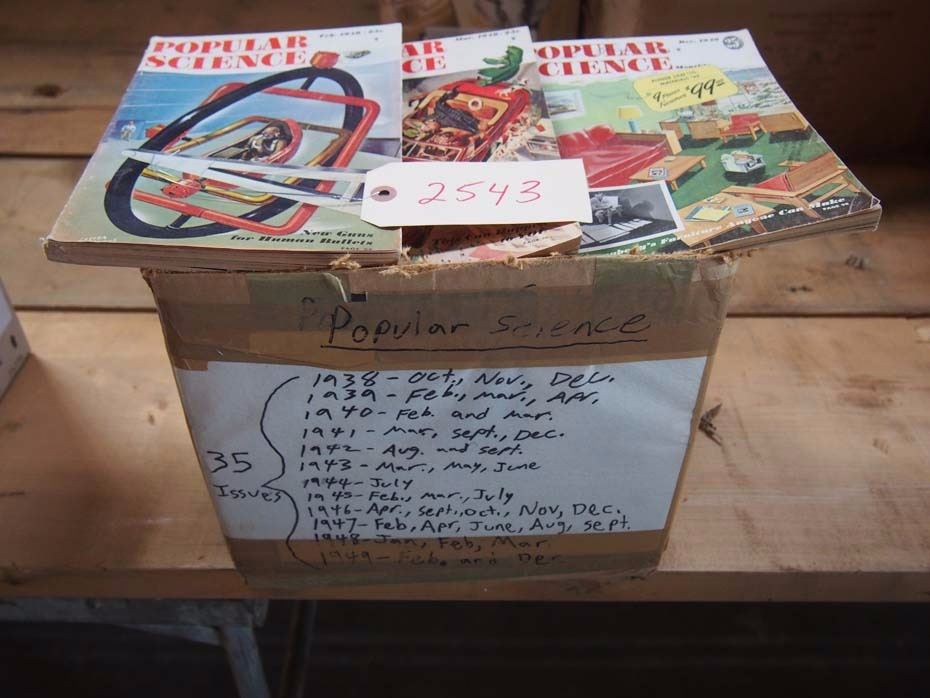 POPULAR
SCIENCE
New Guns
for Human Bullets
PULAR
CIENCE
9 Pieces $99
Furniture Anyone Can Make
2543
Popular Science
35
Issues
1938 - Oct., Nov., Dec.
1939 - Feb., Mar., Apr.
1940 - Feb. and Mar.
1941 - Mar, Sept., Dec.
1942 - Aug. and Sept.
1943 - Mar., May, June
1944 - July
1945 - Feb., Mar., July
1946 - Apr., Sept., Oct., Nov, Dec.
1947 - Feb, Apr, June, Aug, Sept.
1948 - Jan, Feb, Mar.
1949 - Feb. and Dec